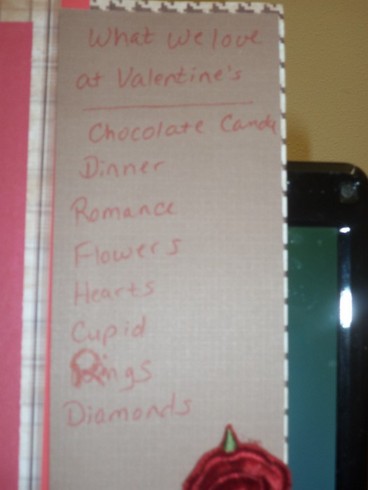 What we love
at Valentine's
Chocolate Candy
Dinner
Romance
Flowers
Hearts
Cupid
Rings
Diamonds